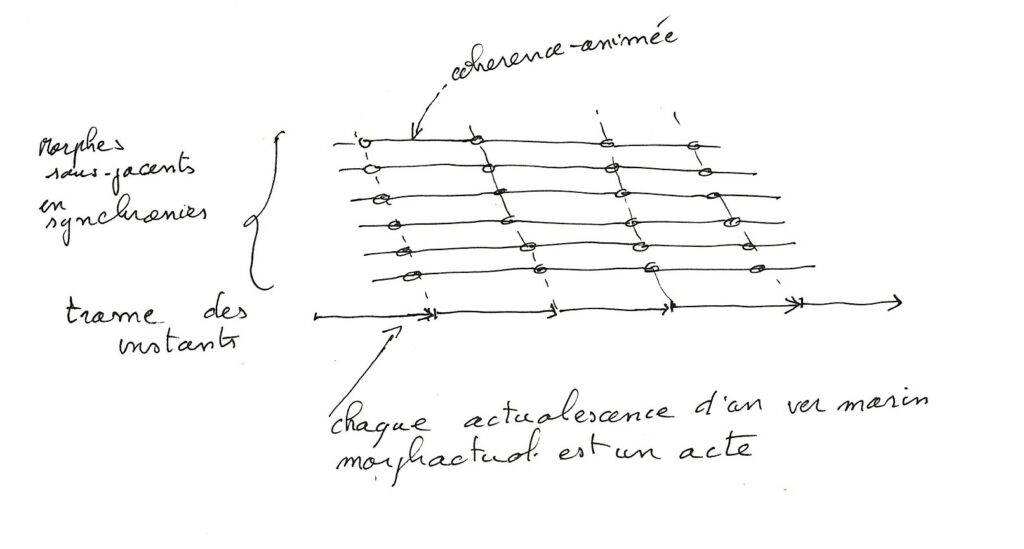 coherence-animée
morphes
sous-jacents
en
synchronies
trame des
instants
chaque actualescence d'un ver marin
morphactuel est un acte